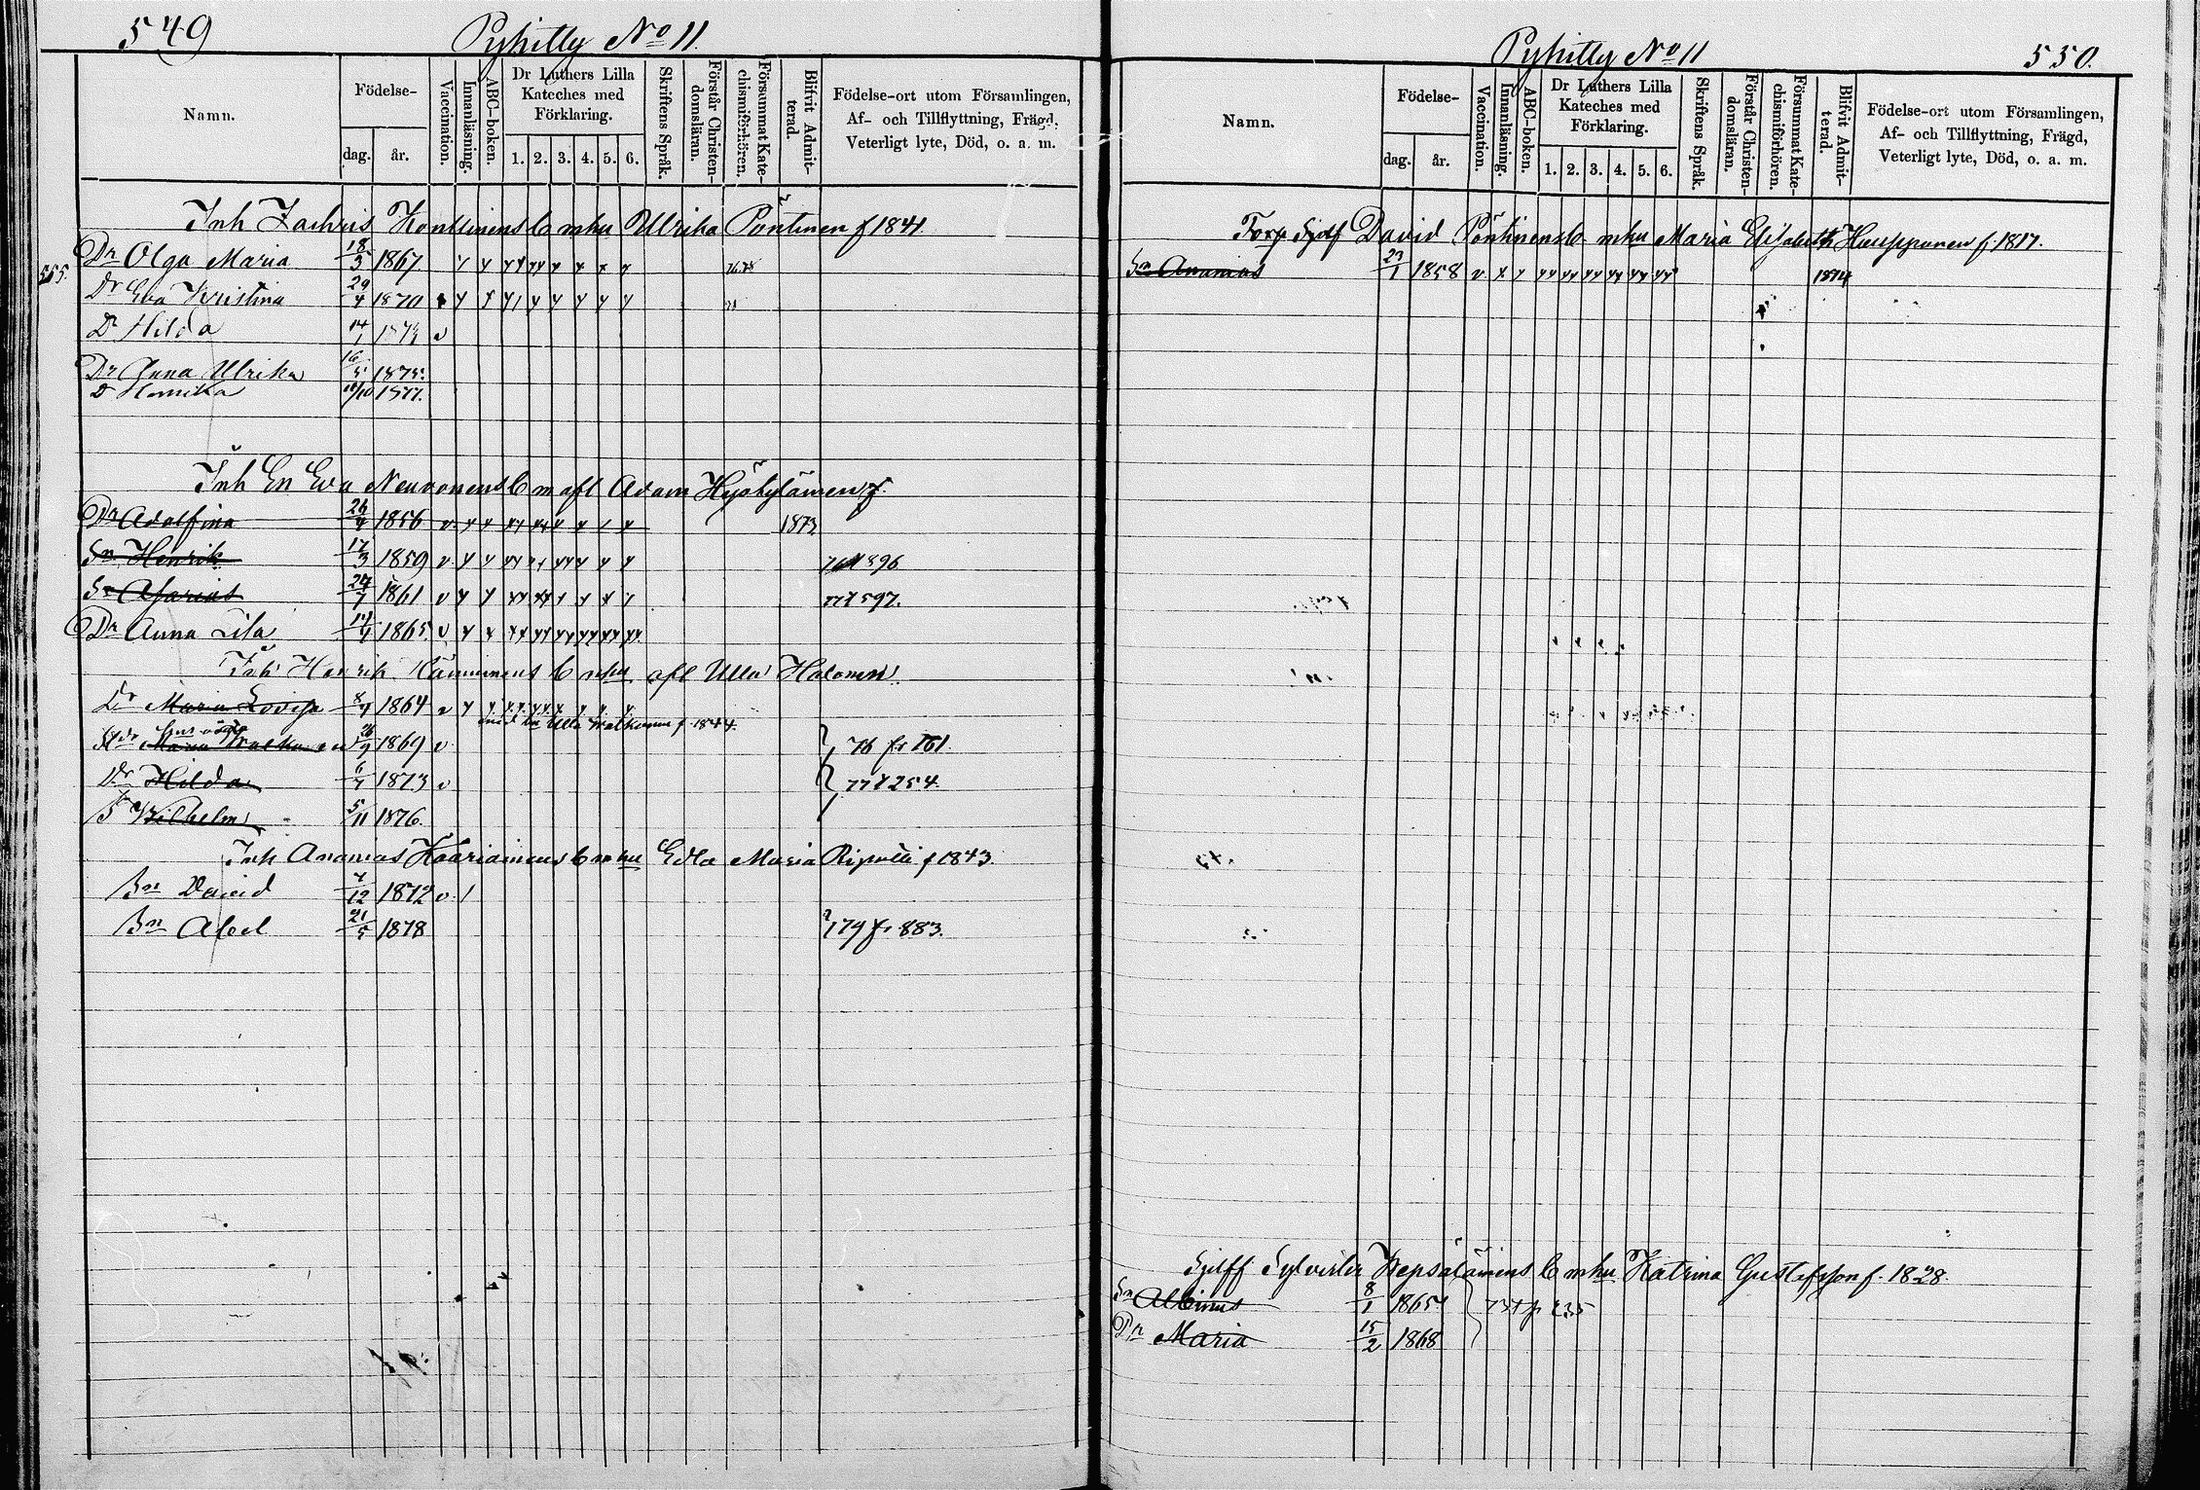 549
Pyhitty No 11.
Namn.
Födelse-
dag.
år.
Vaccination.
Innanläsning.
ABC-boken.
Dr Luthers Lilla Kateches med Förklaring.
1. 2. 3. 4. 5. 6.
Skriftens Språk.
Förstår Christendomsläran.
Försummat Katechismiförhören.
Blifvit Admitterad.
Födelse-ort utom Församlingen,
Af- och Tillflyttning, Frägd,
Veterligt lyte, Död, o. a. m.
Inh Zachris Konttinens b m hu Ulrika Pöntinen f 1841.
555. Dr Olga Maria 18/3 1867
Dr Eva Kristina 29/4 1870
Dr Hilda 14/1 v
Dr Anna Ulrika 16/5 1875.
D Henrika /10 1877.
Inh En Eva Neuvonens b m afl Adam Hyökyläinen f.
Dr Adolfina 26/4 1856 v 1873
Sn Henrik 17/3 1859 v 896
Sn Asarias 24/7 1861 v 77 f 597.
Dr Anna Lisa 14/4 1865 v
Inh Henrik b m hu afl Ulla Halonen
Dr Maria Lovisa 8/4 1864 v
med hu Ulla Walkonen f. 1844.
Maria 26/9 1869 v 76 fr 161.
Dr Hilda 6/7 1873 v 77 f 254.
S Wilhelm 5/11 1876.
Inh Ananias Kaariainens b m hu Edla Maria f 1843.
Sn David 7/12 1872 v
Sn Abel 21/5 1878 79 fr 883.
Pyhitty No 11
550.
Namn.
Födelse-
dag.
år.
Vaccination.
Innanläsning.
ABC-boken.
Dr Luthers Lilla Kateches med Förklaring.
1. 2. 3. 4. 5. 6.
Skriftens Språk.
Förstår Christendomsläran.
Försummat Katechismiförhören.
Blifvit Admitterad.
Födelse-ort utom Församlingen,
Af- och Tillflyttning, Frägd,
Veterligt lyte, Död, o. a. m.
Torp David Pöntinens b. m hu Maria Elisabeth Huuppunen f 1817.
Sn Ananias 23/1 1858 v 1874
Sjelff Sylvester Kepsäläinens b m hu Katrina Gustafsson f. 1828.
Sn Albinus 8/1 1865
Dr Maria 15/2 1868